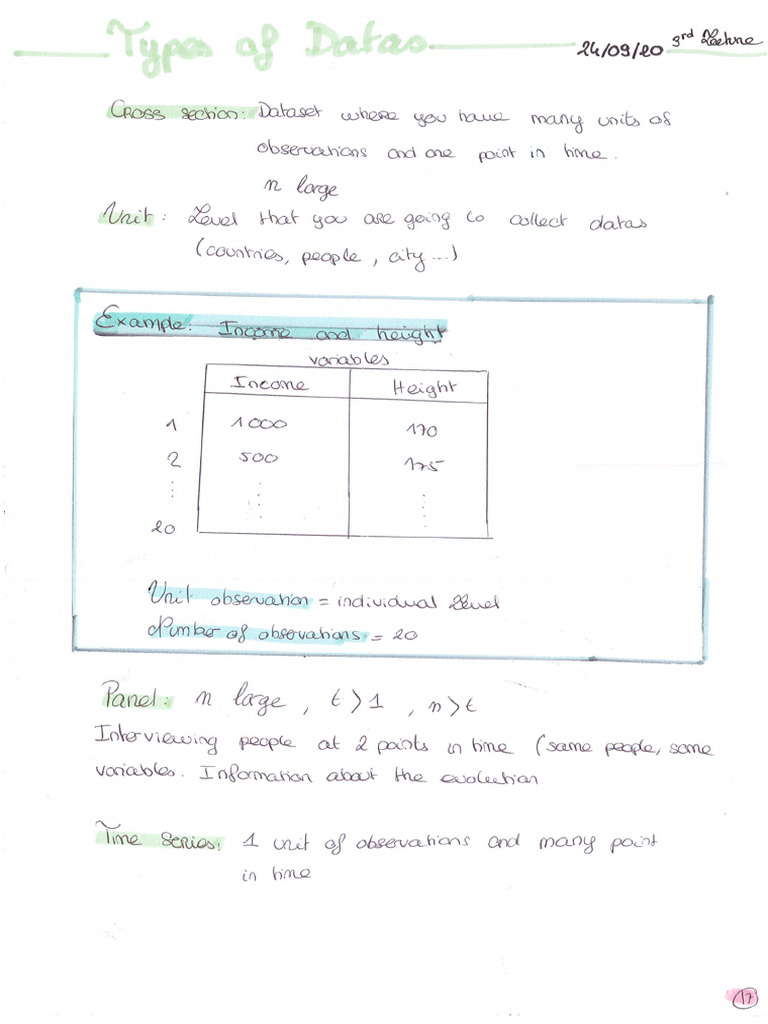 Types of Datas
24/09/20 3rd Lecture
Cross section: Dataset where you have many units of
observations and one point in time.
n large
Unit: Level that you are going to collect datas
(countries, people, city ...)
Example: Income and height
variables
Income Height
1 1000 170
2 500 175
⋮ ⋮ ⋮
20
Unit observation = individual level
Number of observations = 20
Panel: n large, t > 1, n > t
Interviewing people at 2 points in time (same people, same
variables. Information about the evolution
Time Series: 1 unit of observations and many point
in time
17